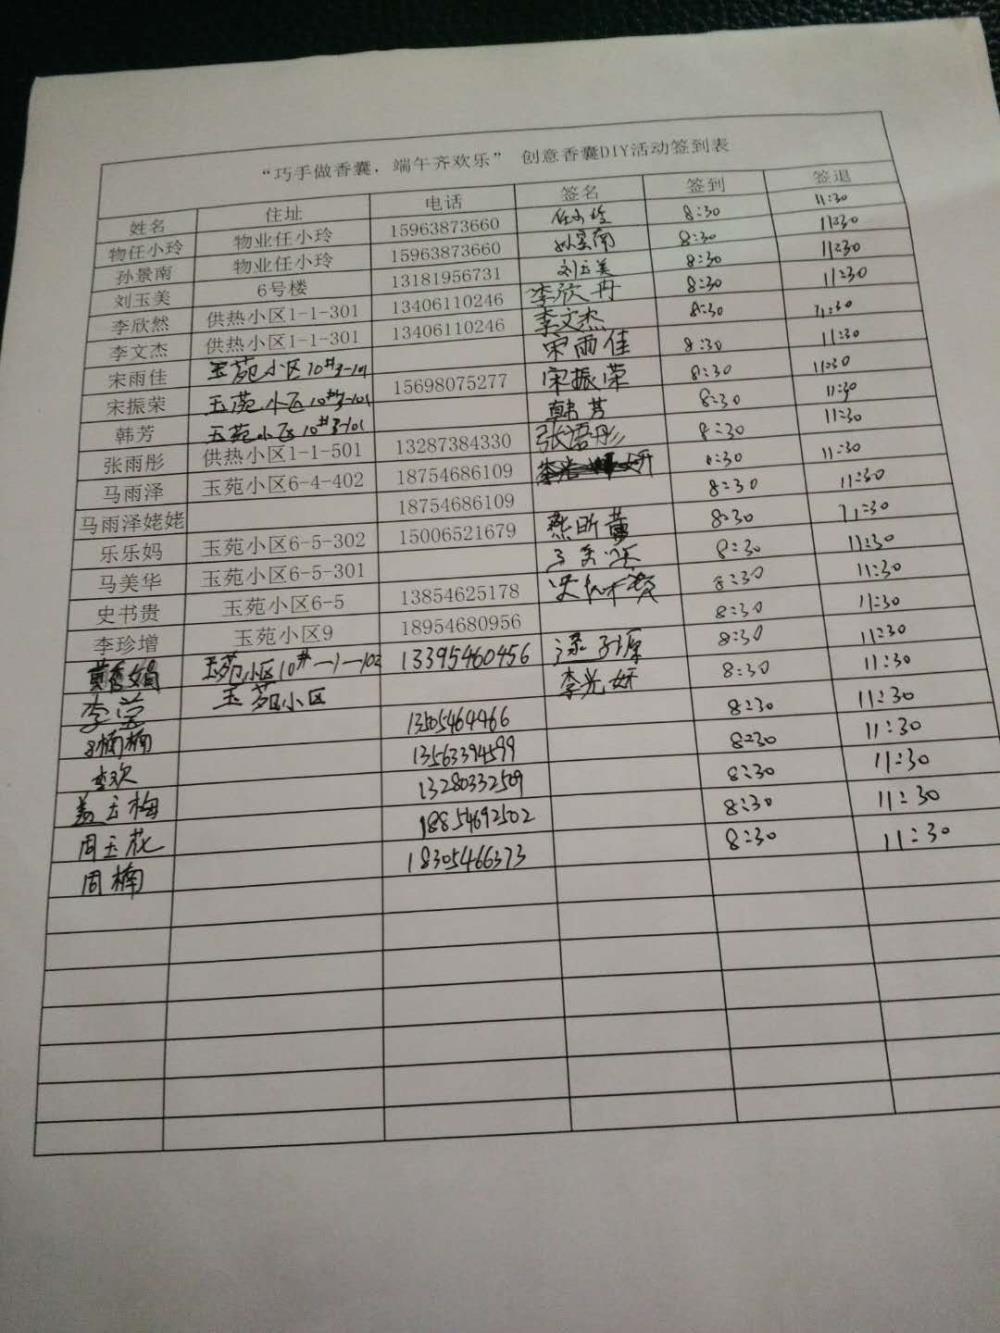 “巧手做香囊，端午齐欢乐” 创意香囊DIY活动签到表
姓名 住址 电话 签名 签到 签退
物任小玲 物业任小玲 15963873660 任小玲 8:30 11:30
孙景南 物业任小玲 15963873660 孙景南 8:30 11:30
刘玉美 6号楼 13181956731 刘玉美 8:30 11:30
李欣然 供热小区1-1-301 13406110246 李欣冉 8:30 11:30
李文杰 供热小区1-1-301 13406110246 李文杰 8:30 11:30
宋雨佳 玉苑小区10#3-101 宋雨佳 8:30 11:30
宋振荣 玉苑小区10#3-101 15698075277 宋振荣 8:30 11:30
韩芳 玉苑小区10#3-101 韩芳 8:30 11:30
张雨彤 供热小区1-1-501 13287384330 张雨彤 8:30 11:30
马雨泽 玉苑小区6-4-402 18754686109 8:30 11:30
马雨泽姥姥 18754686109 8:30 11:30
乐乐妈 玉苑小区6-5-302 15006521679 8:30 11:30
马美华 玉苑小区6-5-301 8:30 11:30
史书贵 玉苑小区6-5 13854625178 8:30 11:30
李珍增 玉苑小区9 18954680956 8:30 11:30
玉苑小区10#-1-102 13395460456 8:30 11:30
李莹 玉苑小区 李光妍 8:30 11:30
楠楠 13505464466 8:30 11:30
李欢 13563394599 8:30 11:30
盖玉梅 13280332509 8:30 11:30
周玉花 18854692502 8:30 11:30
周楠 18305466373 8:30 11:30